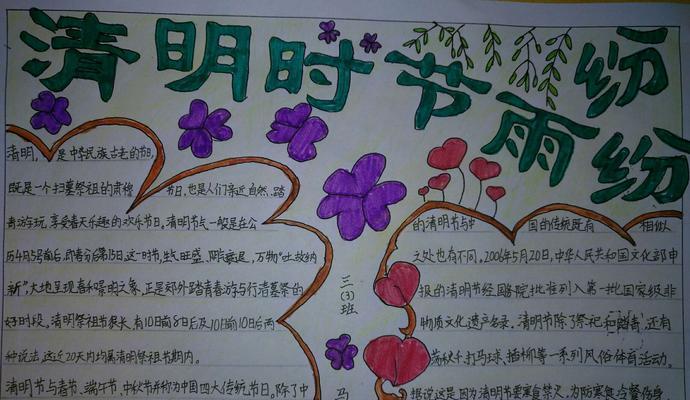 清明时节雨纷纷
清明，是中华民族古老的节日，
既是一个扫墓祭祖的肃穆节日，也是人们亲近自然、踏
青游玩、享受春天乐趣的欢乐节日。清明节气一般是在公
历4月5号前后，即春分后第15日，这一时节，生气旺盛、阴气衰退，万物"吐故纳
新"，大地呈现春和景明之象，正是郊外踏青春游与行清墓祭的
好时段。清明祭祖节很长，有10日前8日后及10日前10日后两
种说法，这近20天内均属清明祭祖节期内。
清明节与春节、端午节、中秋节并称为中国四大传统节日。除了中
三(3)班
马
的清明节与中国的传统既有相似
之处也有不同。2006年5月20日，中华人民共和国文化部申
报的清明节经国务院批准列入第一批国家级非
物质文化遗产名录。清明节除了祭祀和踏青，还有
荡秋千、打马球、插柳等一系列风俗体育活动。
据说这是因为清明节要寒食禁火，为防寒食冷餐伤身，